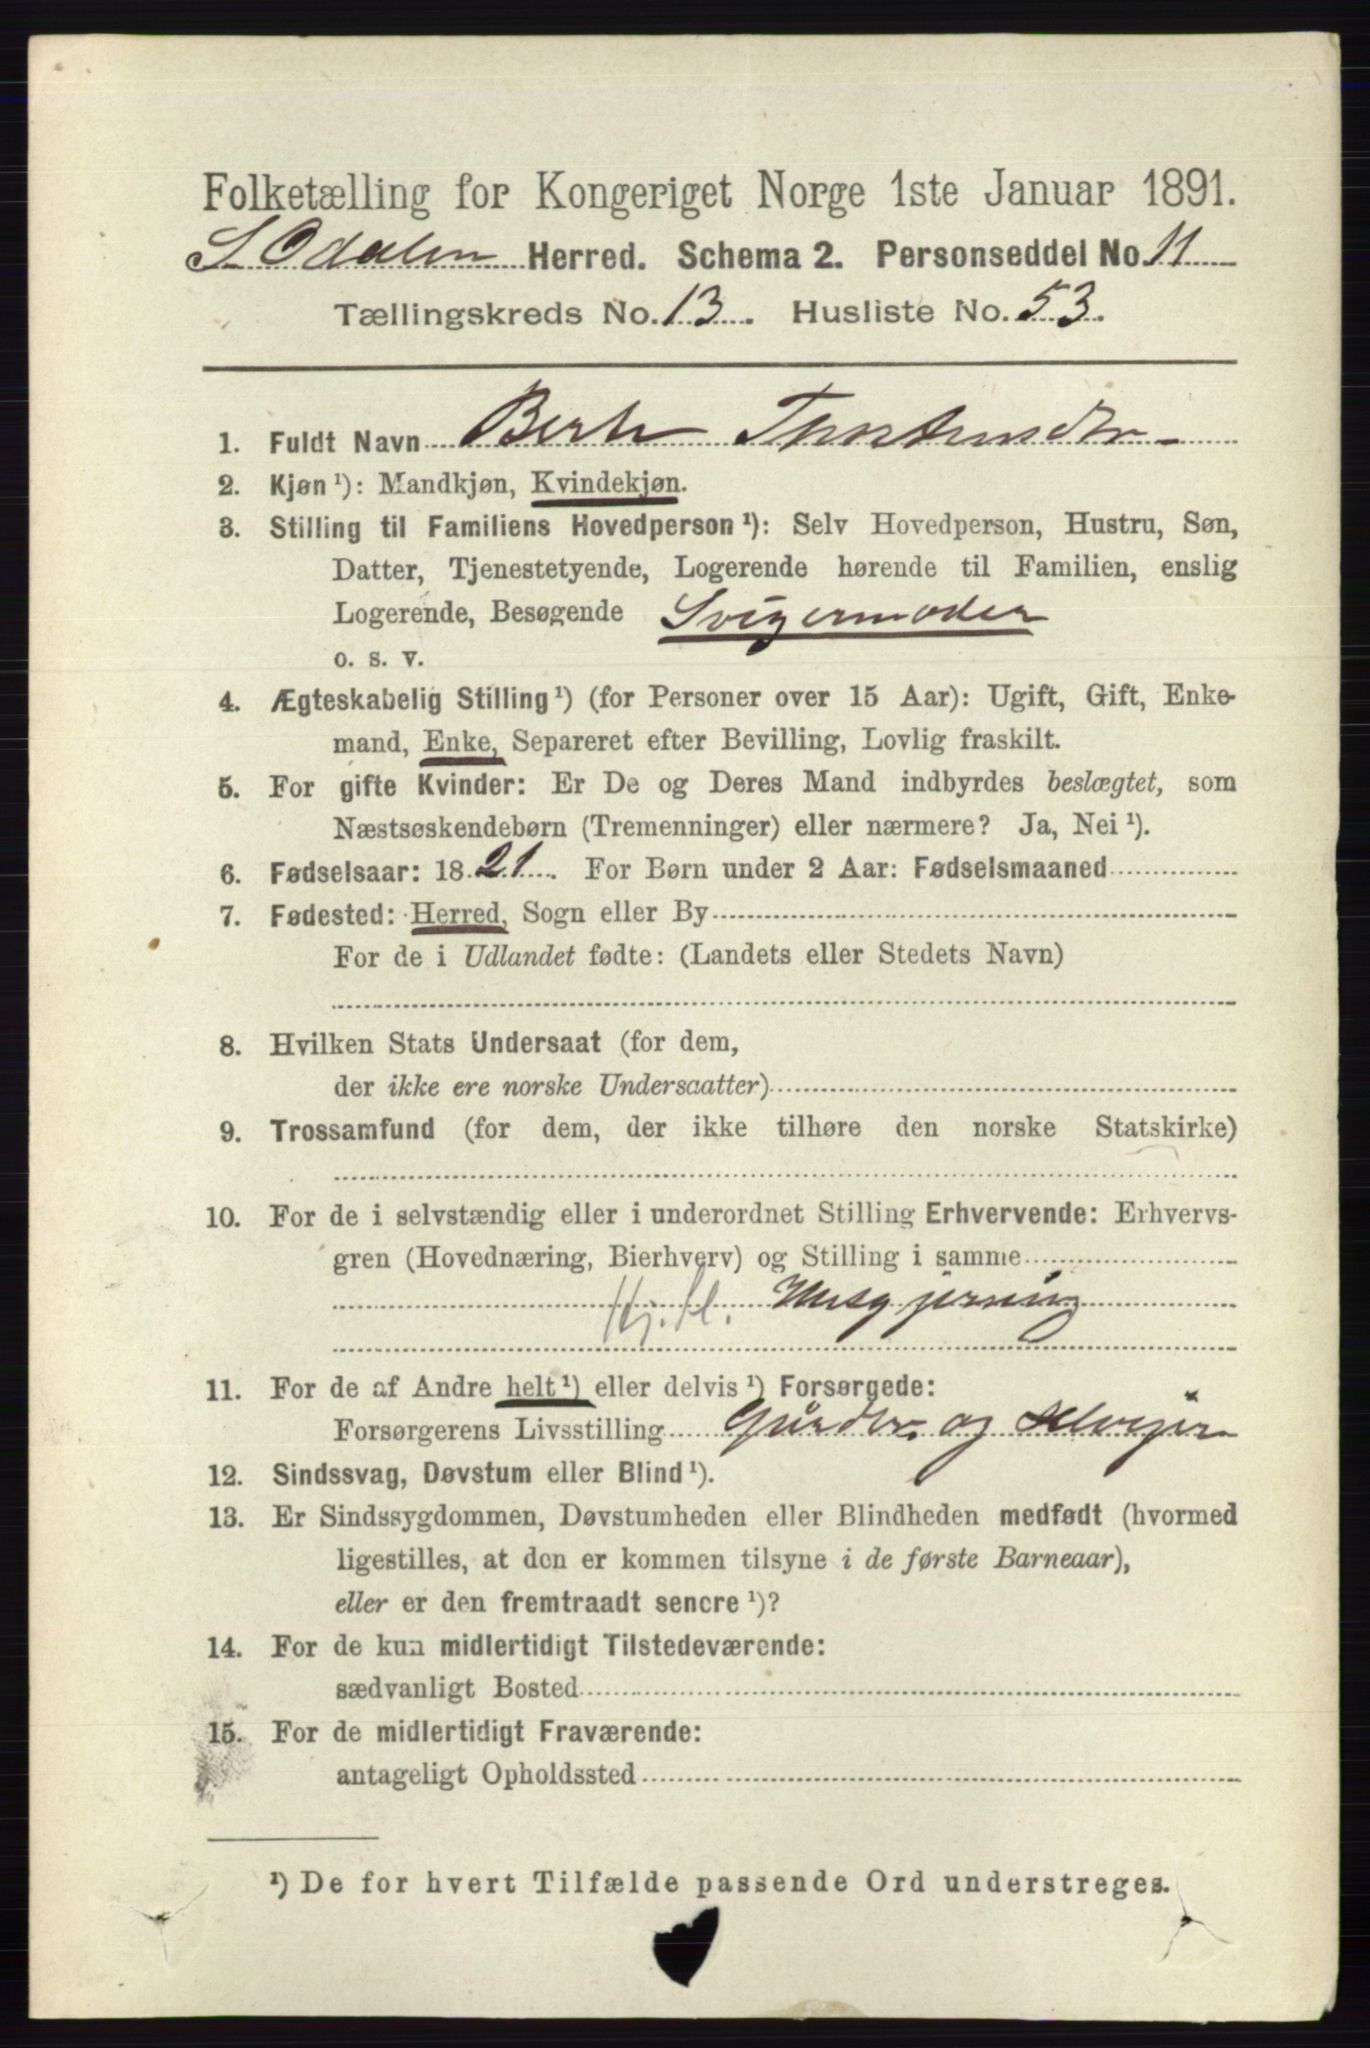 Folketælling for Kongeriget Norge 1ste Januar 1891.
S. Odalen Herred. Schema 2. Personseddel No. 11
Tællingskreds No. 13. Husliste No. 53.
1. Fuldt Navn
2. Kjøn ¹): Mandkjøn, Kvindekjøn.
3. Stilling til Familiens Hovedperson ¹): Selv Hovedperson, Hustru, Søn,
Datter, Tjenestetyende, Logerende hørende til Familien, enslig
Logerende, Besøgende Svigermoder
o. s. v.
4. Ægteskabelig Stilling ¹) (for Personer over 15 Aar): Ugift, Gift, Enke-
mand, Enke, Separeret efter Bevilling, Lovlig fraskilt.
5. For gifte Kvinder: Er De og Deres Mand indbyrdes beslægtet, som
Næstsøskendebørn (Tremenninger) eller nærmere? Ja, Nei ¹).
6. Fødselsaar: 1821. For Børn under 2 Aar: Fødselsmaaned
7. Fødested: Herred, Sogn eller By
For de i Udlandet fødte: (Landets eller Stedets Navn)
8. Hvilken Stats Undersaat (for dem,
der ikke ere norske Undersaatter)
9. Trossamfund (for dem, der ikke tilhøre den norske Statskirke)
10. For de i selvstændig eller i underordnet Stilling Erhvervende: Erhvervs-
gren (Hovednæring, Bierhverv) og Stilling i samme
Husgjerning
11. For de af Andre helt ¹) eller delvis ¹) Forsørgede:
Forsørgerens Livsstilling og
12. Sindssvag, Døvstum eller Blind ¹).
13. Er Sindssygdommen, Døvstumheden eller Blindheden medfødt (hvormed
ligestilles, at den er kommen tilsyne i de første Barneaar),
eller er den fremtraadt senere ¹)?
14. For de kun midlertidigt Tilstedeværende:
sædvanligt Bosted
15. For de midlertidigt Fraværende:
antageligt Opholdssted
¹) De for hvert Tilfælde passende Ord understreges.